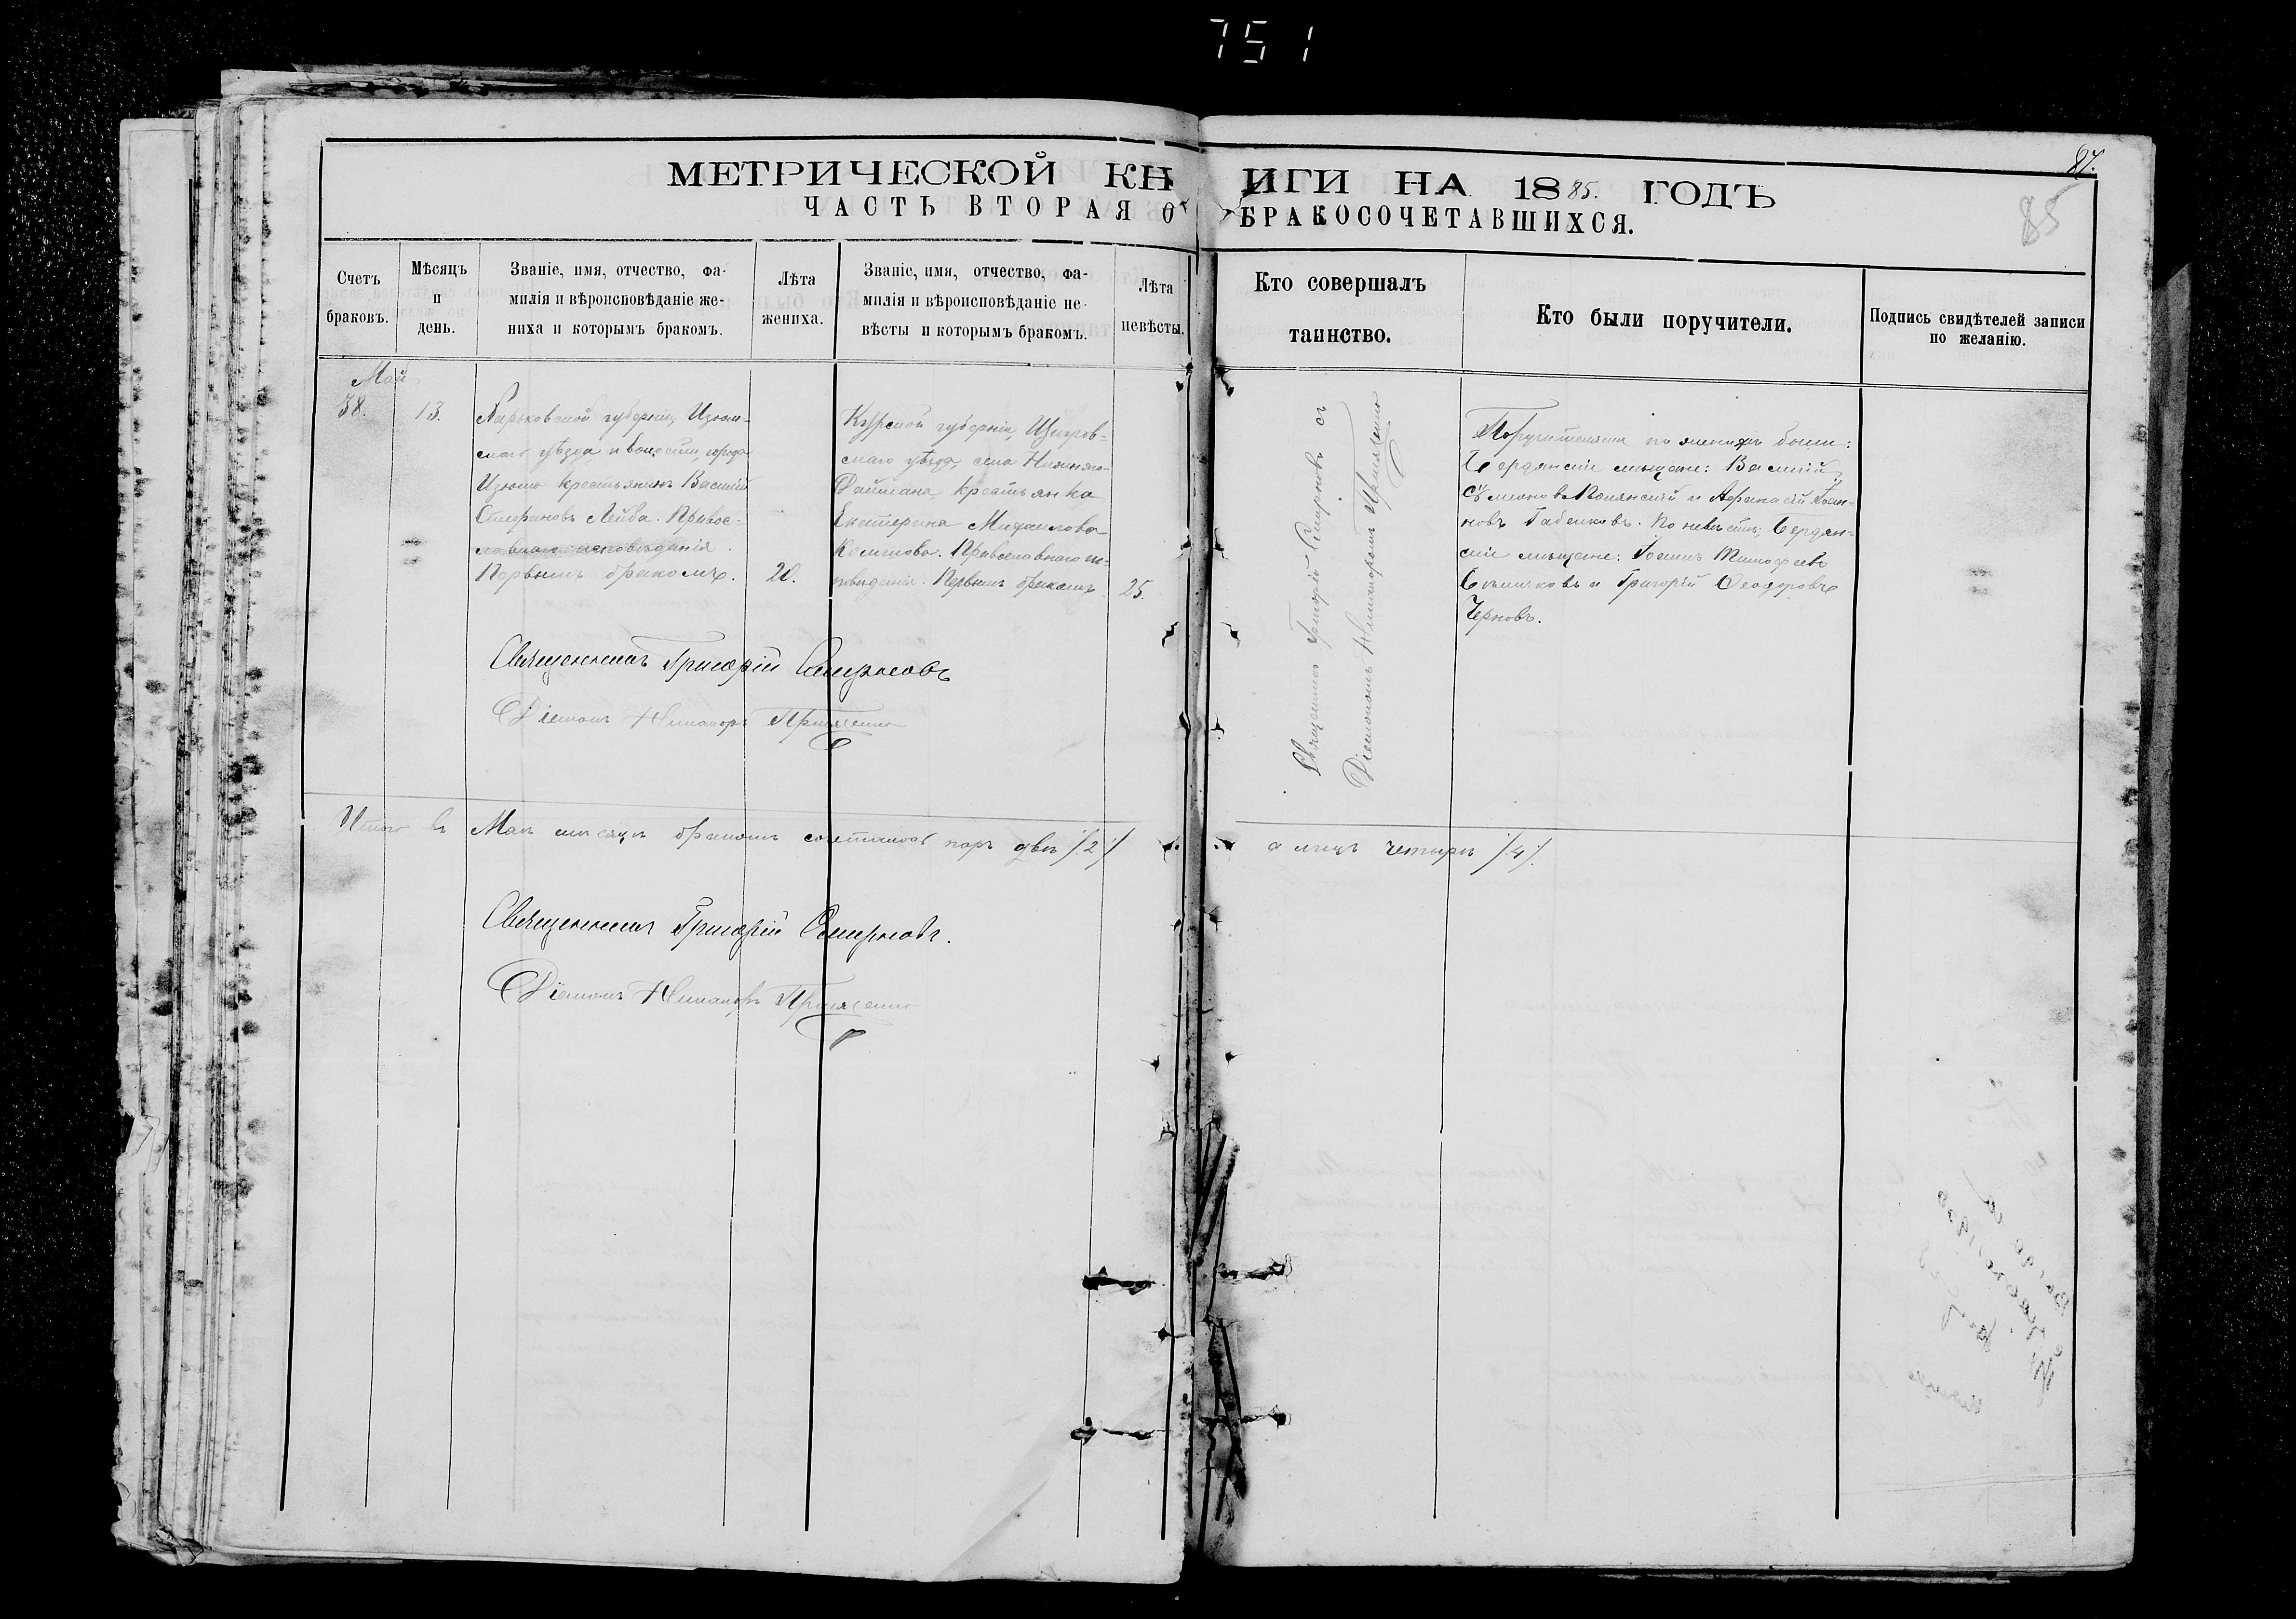 751
МЕТРИЧЕСКОЙ КНИГИ НА 1885. ГОДЪ
87.
85
ЧАСТЬ ВТОРАЯ О БРАКОСОЧЕТАВШИХСЯ.
Счетъ браковъ.
Мѣсяцъ и день.
Званіе, имя, отчество, фа-
милія и вѣроисповѣданіе же-
ниха и которымъ бракомъ.
Лѣта жениха.
Званіе, имя, отчество, фа-
милія и вѣроисповѣданіе не-
вѣсты и которымъ бракомъ.
Лѣта невѣсты.
Кто совершалъ
таинство.
Кто были поручители.
Подпись свидѣтелей записи
по желанію.
Май
38.
13.
Харьковской губерніи, Изюм-
скаго уѣзда и волости, города
Изюма крестьянинъ Василій
Стефановъ Лейба. Правос-
лавнаго исповѣданія.
Первымъ бракомъ.
20.
Курской губерніи, Щигров-
скаго уѣзда, села Нижняго-
крестьянка
Екатерина Михаилова
Православнаго ис-
повѣданія. Первымъ бракомъ.
25.
Священникъ Григорій Смирновъ съ
Діакономъ Никаноромъ
Поручителями по женихѣ были:
Бердянскіе мѣщане: Василій
Сѵмеоновъ и Афанасій Іоан-
новъ Габелковъ. По невѣстѣ: Бердян-
скіе мѣщане: Іоаннъ Тимофеевъ
и Григорій Феодоровъ
Черновъ.
Священникъ Григорій Смирновъ
Діаконъ Никаноръ
Итого въ Маѣ мѣсяцѣ бракомъ сочеталось паръ двѣ /.2./ а лицъ четыре /.4./.
Священникъ Григорій Смирновъ.
Діаконъ Никаноръ